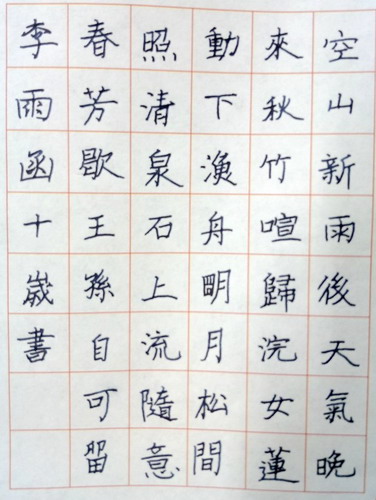 空山新雨後天氣晚
來秋竹喧歸浣女蓮
動下漁舟明月松間
照清泉石上流隨意
春芳歇王孫自可留
李雨函十歲書